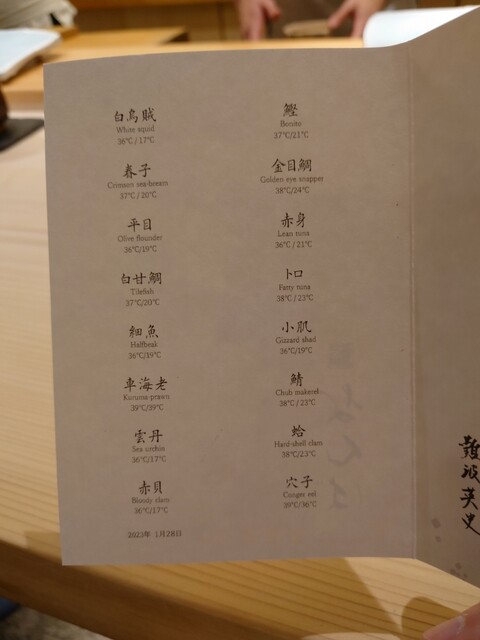 白烏賊
White squid
36℃ / 17℃
春子
Crimson sea-bream
37℃ / 20℃
平目
Olive flounder
36℃/19℃
白甘鯛
Tilefish
37℃/20℃
細魚
Halfbeak
36℃/19℃
車海老
Kuruma prawn
39℃/39℃
雲丹
Sea urchin
36℃/17℃
赤貝
Bloody clam
36℃/17℃
2023年 3月28日
鰹
Bonito
37℃/21℃
金目鯛
Golden eye snapper
38℃/24℃
赤身
Lean tuna
36℃ / 21℃
トロ
Fatty tuna
38℃ / 23℃
小肌
Gizzard shad
36℃/19℃
鯖
Chub makerel
38℃ / 23℃
蛤
Hard-shell clam
38℃/23℃
穴子
Conger eel
39℃/36℃
難波英史